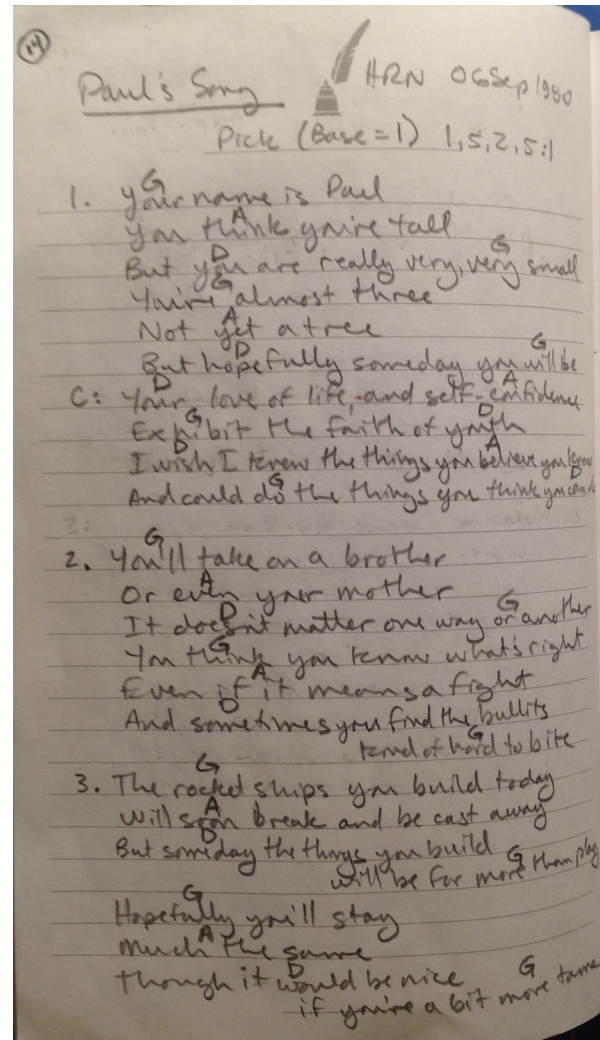 14
Paul's Song HRN 06Sep1980
Pick (Base=1) 1,5,2,5:1
G
1. Your name is Paul
A
You think you're tall
D G
But you are really very, very small
G
You're almost three
A
Not yet a tree
D G
But hopefully someday you will be
D G A
C: Your love of life, and self-confidence
G D
Exhibit the faith of youth
D A
I wish I knew the things you believe you know
G D
And could do the things you think you can do
2:
G
2. You'll take on a brother
A
Or even your mother
D G
It doesn't matter one way or another
G
You think you know what's right
A
Even if it means a fight
D
And sometimes you find the bullits
G
kind of hard to bite
G
3. The rocket ships you build today
A
Will soon break and be cast away
D
But someday the things you build
G
will be far more than play
G
Hopefully you'll stay
A
much the same
D
though it would be nice
G
if you're a bit more tame